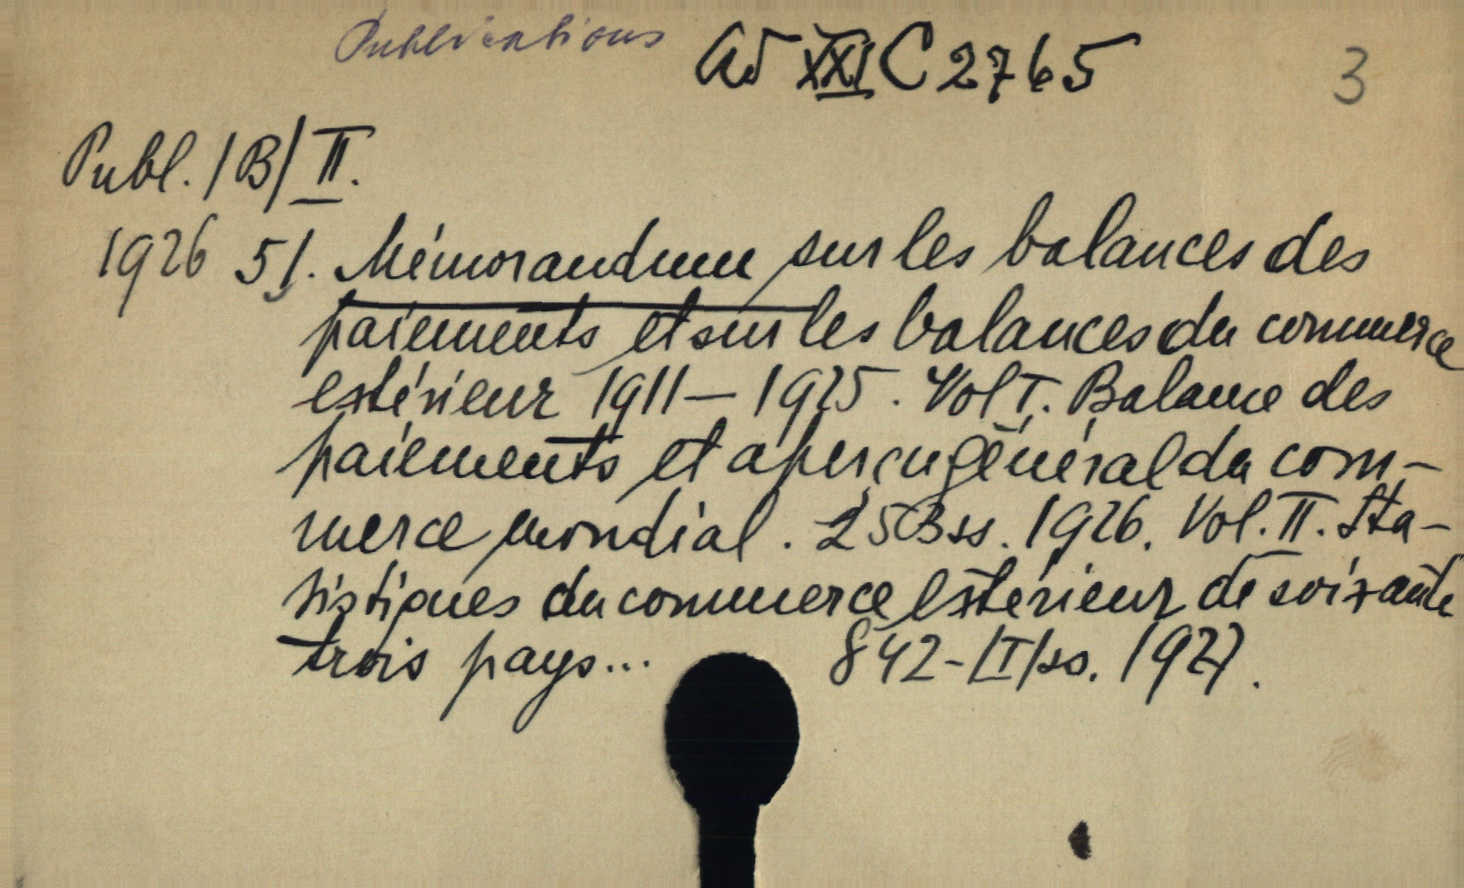 Publications
Ad XXI C 2765 3
Publ. /B/ II.
1926 51. Mémorandum sur les balances des
paiements et sur les balances du commerce
extérieur 1911–1925. Vol I. Balance des
paiements et aperçu général du com-
merce mondial. 253 ss. 1926. Vol. II. Sta-
tistiques du commerce extérieur de soixante
trois pays... 842-/I/ss. 1927.